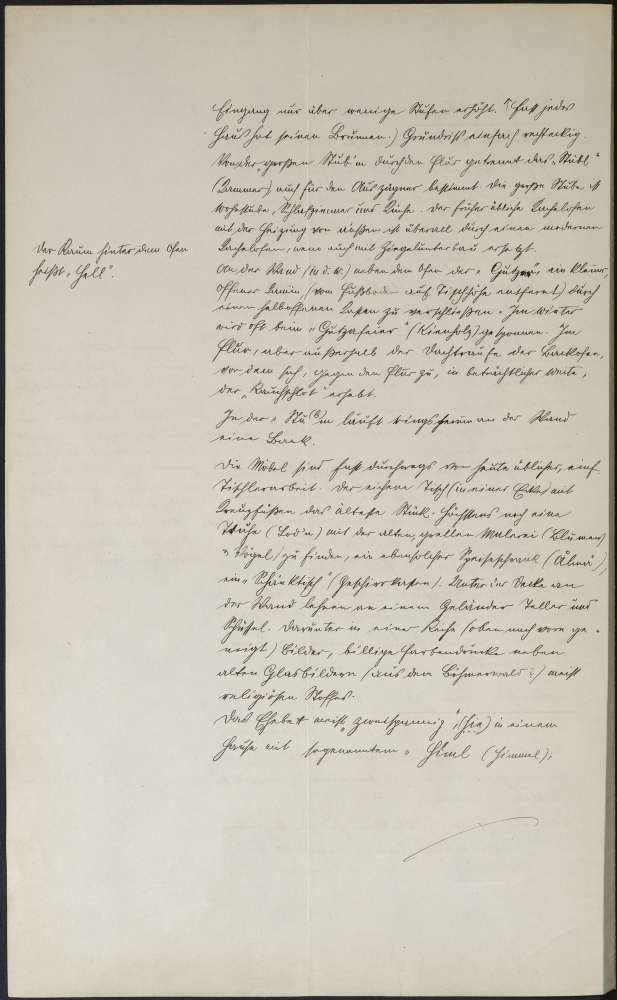 Eingang nur über wenige Stufen erhöht. (Fast jedes
Haus hat seinen Brunnen.) Grundriß einfach rechteckig.
Von der „großen Stub'm durch den Flur getrennt das „Stübl“
(Kammer) auch für den Auszügner bestimmt. Die große Stube ist
Wohnstube, Schlafzimmer und Küche. Der früher übliche Kachelofen
mit der Heizung von außen ist überall durch einen modernen
Kachelofen, wenn auch mit Ziegelunterbau ersetzt.
Der Raum hinter dem Ofen
heißt „Hell“.
An der Wand neben dem Ofen der „ ein kleiner,
offener Kamin, (vom Fußboden auf Tischhöhe entfernt) durch
einen halboffenen Kasten zu verschließen. Im Winter
wird oft beim „ (Kienholz) gesponnen. Im
Flur, aber außerhalb der Dachtraufe der Backofen,
vor dem sich, gegen den Flur zu, in beträchtlicher Weite,
der „Rauchschlot“ erhebt.
In der „Stu(b)m läuft rings herum an der Wand
eine Bank.
Die Möbel sind fast durchwegs von heute üblicher, einf.
Tischlerarbeit. Der eichene Tisch (in einer Ecke) mit
Kreuzfüßen das älteste Stück. Höchstens noch eine
Truhe (Lod'n) mit der alten, grellen Malerei (Blumen
u. Vögel) zu finden, ein ebensolcher Speiseschrank (Almä),
ein „Schänktisch“ (Geschirrkasten). Unter der Decke an
der Wand lehnen an einem Geländer Teller und
Schüssel. Darunter in einer Reihe (oben nach vorn ge-
neigt) Bilder, billige Farbendrucke neben
alten Glasbildern (aus dem Böhmerwald?) meist
religiösen Stoffes.
Das Ehebett meist „zweispannig“ in einem
Hause mit sogenanntem „Himl (Himmel).